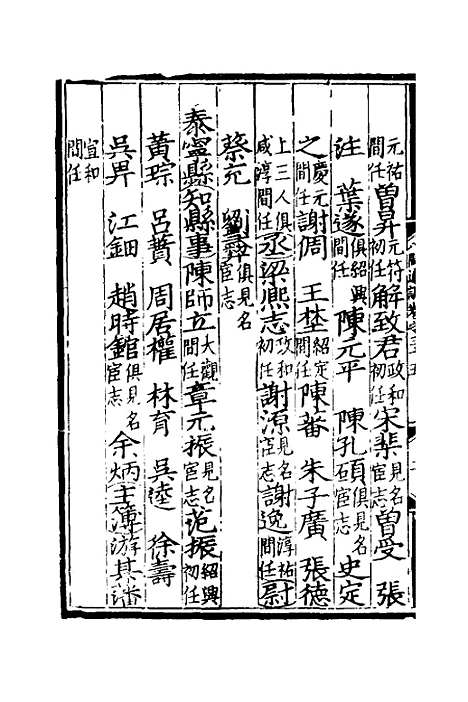 元祐間任曽昇元符初任解致君政和初任宋棐見名宦志曽受 張
注 葉遂俱紹興間任陳元平 陳孔碩俱見名宦志 史定
之慶元間任謝周 王埜紹定間任陳蕃 朱子廣 張德
上三人俱咸淳間任丞梁熈志政和初任謝源見名宦志謝逸淳祐間任尉
蔡元 劉彛俱見名宦志
泰寧縣知縣事陳師立大觀間任章元振見名宦志范振紹興初任
黄琮 呂贄 周居權 林育 吳逵 徐壽
吳畀 江鈿 趙時錧俱見名宦志 余炳主簿游其藩
宣和間任